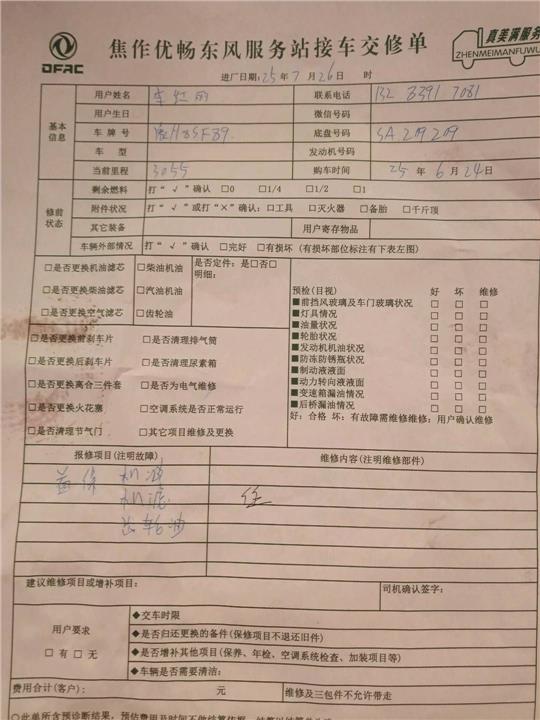 DFAC
焦作优畅东风服务站接车交修单
真美满服务
ZHENMEIMANFUWU
进厂日期：25年7月26日 时
基本信息
用户姓名
联系电话 132 8391 7081
用户生日 微信号码
车牌号 底盘号码 SA209209
车型 发动机号码
当前里程 3055 购车时间 25年6月24日
修前状态
剩余燃料 打“√”确认 □0 □1/4 □1/2 □1
附件状况 打“√”或打“×”确认：□工具 □灭火器 □备胎 □千斤顶
其它装备 用户寄存物品
车辆外部情况 打“√”确认 □完好 □有损坏（有损坏部位标注有下表左图）
□是否更换机油滤芯 □柴油机油
□是否更换柴油滤芯 □汽油机油
□是否更换空气滤芯 □齿轮油
是否定件：是□否□
明细：
□是否更换前刹车片 □是否清理排气筒
□是否更换后刹车片 □是否清理尿素箱
□是否更换离合三件套 □是否为电气维修
□是否更换火花塞 □空调系统是否正常运行
□是否清理节气门 □其它项目维修及更换
预检(目视) 好 坏 维修
■前挡风玻璃及车门玻璃状况 □ □ □
■灯具情况 □ □ □
■油量状况 □ □ □
■轮胎状况 □ □ □
■发动机机油状况 □ □ □
■防冻防锈瓶状况 □ □ □
■制动液液面 □ □ □
■动力转向液液面 □ □ □
■变速箱漏油情况 □ □ □
■后桥漏油情况 □ □ □
好：合格 坏：有故障需维修维修：用户确认维修
报修项目(注明故障) 维修内容(注明维修部件)
首保 机油
机滤
齿轮油
建议维修项目或增补项目： 司机确认签字：
用户要求
□有□无
◆交车时限
◆是否归还更换的备件(保修项目不退还旧件)
◆是否增补其他项目(保养、年检、空调系统检查、加装项目等)
◆车辆是否需要清洁：
费用合计(客户)： 元 维修及三包件不允许带走